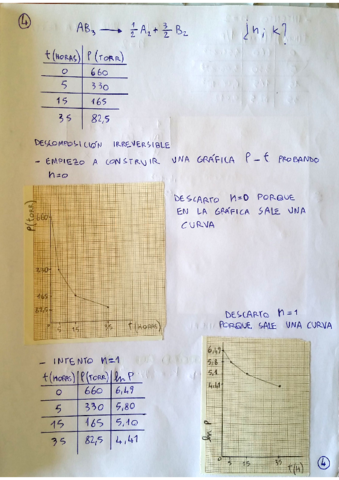 ④ AB₃ → 1/2 A₂ + 3/2 B₂ ¿n, k?
t(HORAS) | P(TORR)
0 | 660
5 | 330
15 | 165
35 | 82,5
DESCOMPOSICIÓN IRREVERSIBLE
- EMPIEZO A CONSTRUIR UNA GRÁFICA P-t PROBANDO
n=0
DESCARTO n=0 PORQUE
EN LA GRÁFICA SALE UNA
CURVA
P(TORR)
660
330
165
82,5
5 15 35 T(HORAS)
DESCARTO n=1
PORQUE SALE UNA CURVA
- INTENTO n=1
t(HORAS) | P(TORR) | ln P
0 | 660 | 6,49
5 | 330 | 5,80
15 | 165 | 5,10
35 | 82,5 | 4,41
6,49
5,8
5,1
4,41
ln P
0 5 15 35 T(H)
④